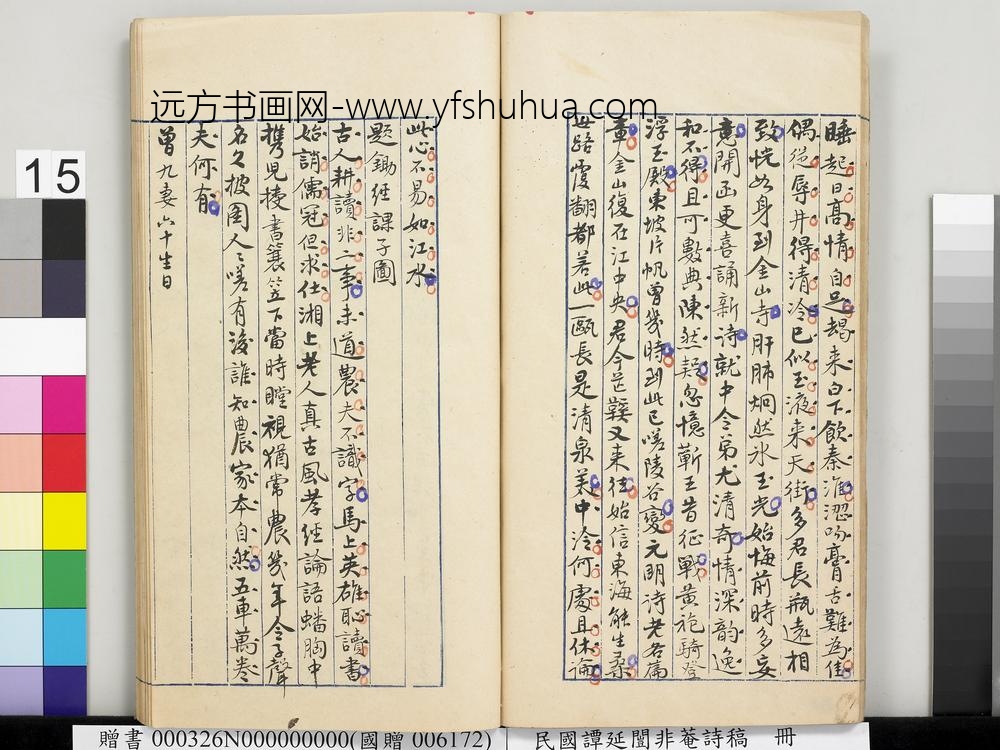 远方书画网-www.yfshuhua.com
15
睡起日高情自足朅来白下飲秦淮澀吻膏舌難為佳
偶從辱井得清冷已似玉液来天街多君長瓶遠相
致恍如身到金山寺肝肺炯然冰玉光始悔前時多妄
意開函更喜誦新詩就中令弟尤清奇情深韵逸
和不得且可數典陳然疑忽憶蘄王昔征戰黄袍騎登
浮玉殿東坡片帆曾幾時到此已嗟陵谷變元明詩老名篇
章金山復在江中央君今芒鞵又来往始信東海能生桑
世路覆翻都若此一甌長是清泉美中泠何處且休論
此心不易如江水
題鋤經課子圖
古人耕讀非二事未道農夫不識字馬上英雄恥讀書
始誚儒冠但求仕湘上老人真古風孝經論語蟠胸中
携兒挾書蓑笠下當時瞠視猶常農幾年令子聲
名久披圖人人嗟有後誰知農家本自然五車萬卷
夫何有
曾九妻六十生日
贈書 000326N000000000(國贈 006172)
民國譚延闓非菴詩稿 冊